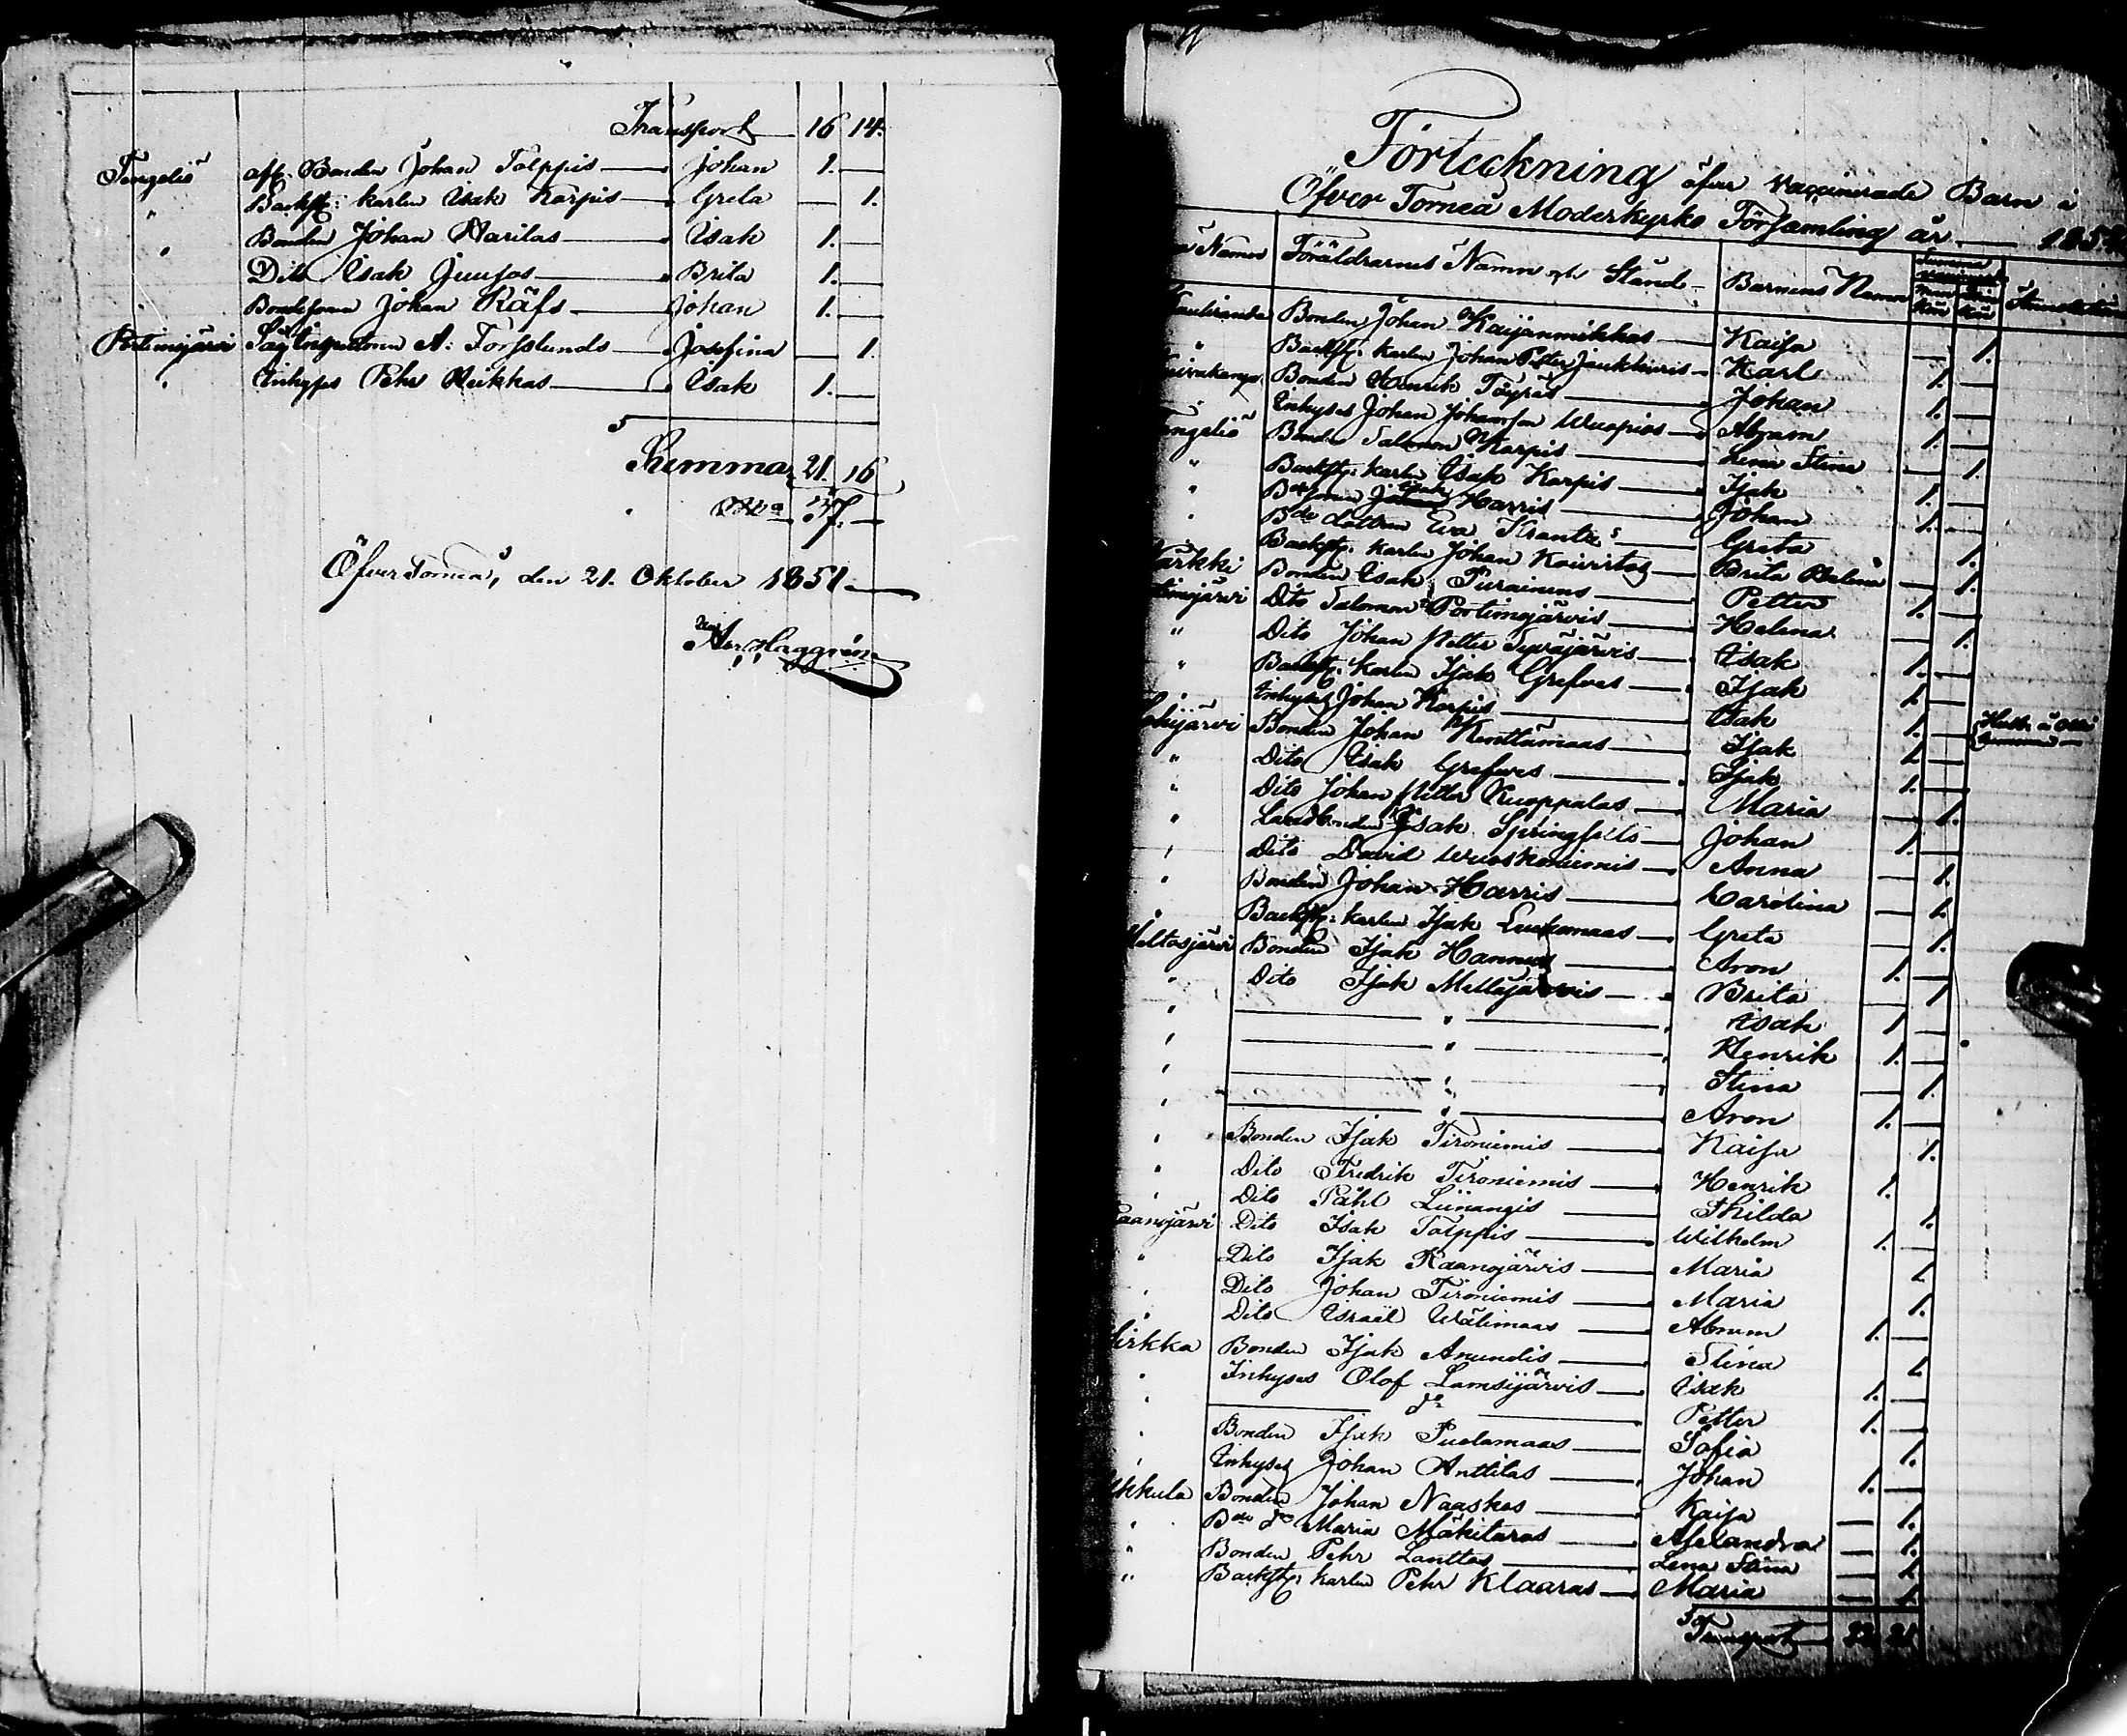 Transport 16 14.
Tengeliö aff. Bonden Johan Tolppis Johan 1.
" Backst: karlen Isak Karpis Greta 1.
" Bonden Johan Harilas Isak 1.
Dito Isak Juusos Brita 1.
" Bondesonen Johan Räfs Johan 1.
Portimojärvi A: Forsslunds Josefina 1.
" Inhyses Pehr Heikkas Isak 1.
Summa 21. 16
37.
ÖfverTorneå, den 21. Oktober 1851.
Häggren
Förteckning öfver vaccinerade Barn i
Öfver Torneå Moderkyrko Församling år
Namn Föräldrarnes Namn och Stånd Barnens Namn
Bonden Johan Kaijanmikkas Kaisa 1.
" Backst: karlen Johan Petter Karl 1.
Bonden Henrik Töyräs Johan 1.
Inhyses Johan Johansson Wuopios Abram 1.
Bonden Salomon Karpis Lena Stina 1.
" Backst: karlen Isak Karpis Isak 1.
" Isak Harris Johan 1.
" Bde dottren Eva Krantz's Greta 1.
Backst: karlen Johan Koivistos Brita Helena 1.
Bonden Isak Puranens Petter 1.
Dito Salomon Portimojärvis Helena 1.
" Dito Johan Petter Syväjärvis Isak 1.
" Backst: karlen Isak Grefves Isak 1.
Inhyses Johan Karpis Isak 1.
Bonden Johan Kenttämaas Isak 1.
" Dito Isak Grefves Isak 1.
" Dito Johan Petter Kuoppalas Maria 1.
" Landbonden Isak Springfelts Johan 1.
" Dito David Wuoskoniemis Anna 1.
" Bonden Johan Harris Carolina 1.
" Backst: karlen Isak Luukamaas Greta 1.
Meltosjärvi Bonden Isak Hannus Aron 1.
" Dito Isak Mellajärvis Brita 1
" " Isak 1
" " Henrik 1.
" " Stina 1.
" " Aron 1.
" Bonden Isak Tironiemis Kaisa 1.
" Dito Fredrik Tironiemis Henrik 1.
" Dito Påhl Liinangis Thilda 1.
Raanojärvi Dito Isak Tolppis Wilhelm 1.
" Dito Isak Raanojärvis Maria 1.
" Dito Johan Tironiemis Maria 1.
" Dito Israël Wälimaas Abram 1.
Bonden Isak Anundis Stina 1.
" Inhyses Olof Lamsijärvis Isak 1.
" do Petter 1.
" Bonden Isak Puolamaas Sofia 1.
" Inhyses Johan Anttilas Johan 1.
Bonden Johan Naaskas Kaisa 1.
" Bde do Maria Mäkitalos Alexandra 1.
" Bonden Pehr Lanttos Lena Stina 1.
" Backst: karlen Pehr Klaaras Maria 1.
Transport 22 21